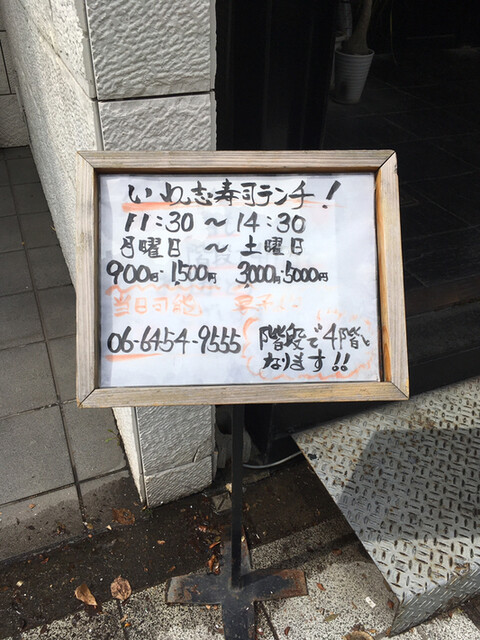 いわ志寿司ランチ!
11:30 ~ 14:30
月曜日 ~ 土曜日
900円・1,500円 3000円・5000円
当日可能
06-6454-9555
階段で4階に
なります!!